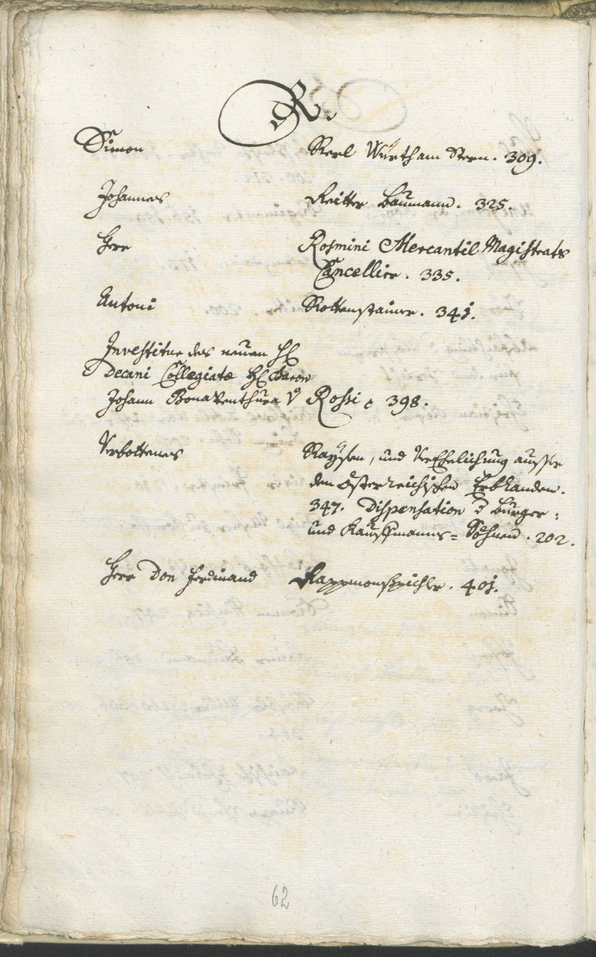 R.
Simon Rerl Würth am Stern. 309.
Johannes Reitter Baumann. 325.
Herr Rosmini Mercantil Magistrats
Cancellier. 335.
Antoni Rottensteiner. 341.
Investitur des neuen H
Decani Collegiatæ H Baron
Johann Bonaventhura V Rossi 398.
Verbottenes Raysen, und Verehelichung ausser
den Österreichischen Erbländen.
347. Dispensation Bürger:
und Kauffmanns= Söhnen. 202.
Herr Don Ferdinand Rappmonspichler. 401.
62